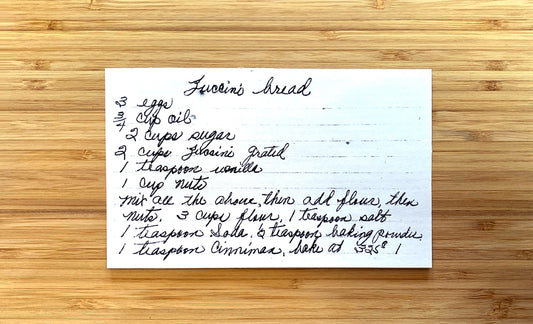 Zuccini bread
3 eggs
3/4 cup oil
2 cups sugar
2 cups Zuccini grated
1 teaspoon vanilla
1 cup nuts
mix all the above, then add flour, then
nuts. 3 cups flour, 1 teaspoon salt
1 teaspoon Soda, teaspoon baking powder
1 teaspoon Cinniman, bake at 325° 1